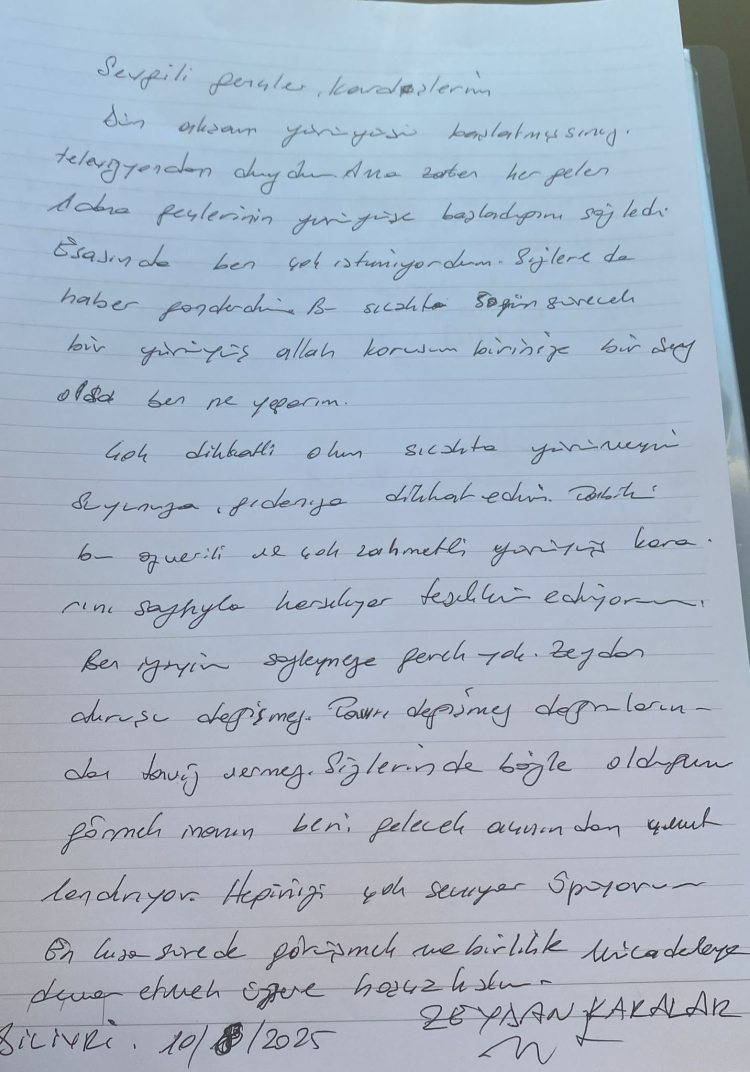 Sevgili gençler, kardeşlerim
Dün akşam yürüyüşü başlatmışsınız.
televizyondan duydum. Ama zaten her gelen
Adana gençlerinin yürüyüşe başladığını söyledi.
Esasında ben çok istemiyordum. Sizlere de
haber gönderdim. Bu sıcakta 5 gün sürecek
bir yürüyüş allah korusun birinize bir şey
olsa ben ne yaparım.
Çok dikkatli olun sıcakta yürümeyin
Suyunuza, gıdanıza dikkat edin. Tabiki
bu özverili ve çok zahmetli yürüyüş kara-
rını saygıyla karşılıyor teşekkür ediyorum.
Ben iyiyim söylemeye gerek yok. Zeydan
duruşu değişmez. Tavrı değişmez doğruların-
dan taviz vermez. Sizlerinde böyle olduğunu
görmek inanın beni gelecek açısından umut
lendiriyor. Hepinizi çok seviyor Öpüyorum
En kısa sürede görüşmek ve birlikte Mücadeleye
devam etmek üzere hoşçakalın.
ZEYDAN KARALAR
SİLİVRİ. 10/8/2025